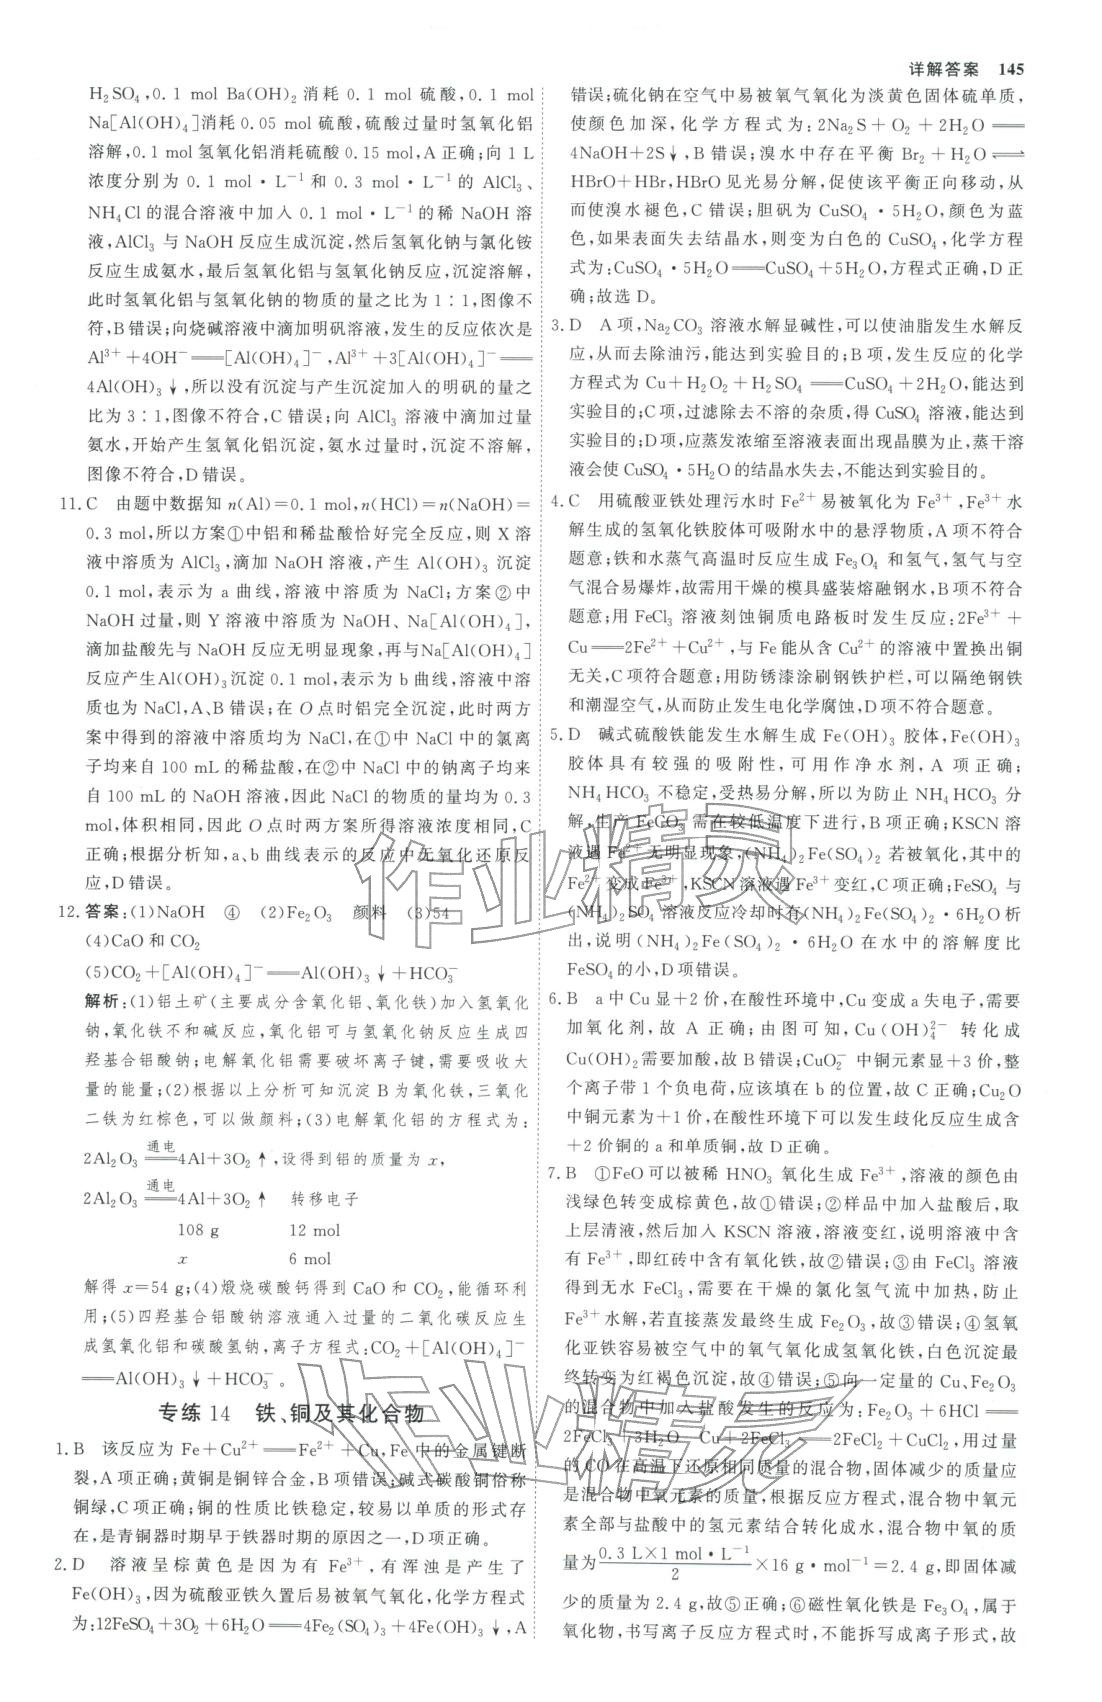 详解答案 145
H₂SO₄,0.1 mol Ba(OH)₂消耗 0.1 mol 硫酸,0.1 mol
Na[Al(OH)₄]消耗 0.05 mol 硫酸,硫酸过量时氢氧化铝
溶解,0.1 mol氢氧化铝消耗硫酸 0.15 mol,A 正确;向 1 L
浓度分别为 0.1 mol·L⁻¹ 和 0.3 mol·L⁻¹ 的 AlCl₃、
NH₄Cl 的混合溶液中加入 0.1 mol·L⁻¹的稀 NaOH 溶
液,AlCl₃ 与 NaOH 反应生成沉淀,然后氢氧化钠与氯化铵
反应生成氨水,最后氢氧化铝与氢氧化钠反应,沉淀溶解,
此时氢氧化铝与氢氧化钠的物质的量之比为 1∶1,图像不
符,B错误;向烧碱溶液中滴加明矾溶液,发生的反应依次是
Al³⁺+4OH⁻══[Al(OH)₄]⁻,Al³⁺+3[Al(OH)₄]⁻══
4Al(OH)₃↓,所以没有沉淀与产生沉淀加入的明矾的量之
比为 3∶1,图像不符合,C 错误;向 AlCl₃ 溶液中滴加过量
氨水,开始产生氢氧化铝沉淀,氨水过量时,沉淀不溶解,
图像不符合,D 错误。
11.C 由题中数据知 n(Al)=0.1 mol,n(HCl)=n(NaOH)=
0.3 mol,所以方案①中铝和稀盐酸恰好完全反应,则 X 溶
液中溶质为 AlCl₃,滴加 NaOH 溶液,产生 Al(OH)₃ 沉淀
0.1 mol,表示为 a 曲线,溶液中溶质为 NaCl;方案②中
NaOH 过量,则 Y 溶液中溶质为 NaOH、Na[Al(OH)₄],
滴加盐酸先与 NaOH 反应无明显现象,再与Na[Al(OH)₄]
反应产生Al(OH)₃沉淀 0.1 mol,表示为 b 曲线,溶液中溶
质也为 NaCl,A、B 错误;在 O点时铝完全沉淀,此时两方
案中得到的溶液中溶质均为 NaCl,在①中 NaCl 中的氯离
子均来自 100 mL的稀盐酸,在②中 NaCl 中的钠离子均来
自 100 mL 的 NaOH 溶液,因此 NaCl 的物质的量均为 0.3
mol,体积相同,因此 O 点时两方案所得溶液浓度相同,C
正确;根据分析知,a、b 曲线表示的反应中无氧化还原反
应,D 错误。
12.答案:(1)NaOH ④ (2)Fe₂O₃ 颜料 (3)54
(4)CaO 和 CO₂
(5)CO₂+[Al(OH)₄]⁻══Al(OH)₃↓+HCO₃⁻
解析:(1)铝土矿(主要成分含氧化铝、氧化铁)加入氢氧化
钠,氧化铁不和碱反应,氧化铝可与氢氧化钠反应生成四
羟基合铝酸钠;电解氧化铝需要破坏离子键,需要吸收大
量的能量;(2)根据以上分析可知沉淀 B为氧化铁,三氧化
二铁为红棕色,可以做颜料;(3)电解氧化铝的方程式为:
2Al₂O₃ ══(通电) 4Al+3O₂↑,设得到铝的质量为 x,
2Al₂O₃ ══(通电) 4Al+3O₂↑ 转移电子
108 g 12 mol
x 6 mol
解得 x=54 g;(4)煅烧碳酸钙得到 CaO 和 CO₂,能循环利
用;(5)四羟基合铝酸钠溶液通入过量的二氧化碳反应生
成氢氧化铝和碳酸氢钠,离子方程式:CO₂+[Al(OH)₄]⁻
══Al(OH)₃↓+HCO₃⁻。
专练 14 铁、铜及其化合物
1.B 该反应为 Fe+Cu²⁺══Fe²⁺+Cu,Fe 中的金属键断
裂,A 项正确;黄铜是铜锌合金,B 项错误;碱式碳酸铜俗称
铜绿,C 项正确;铜的性质比铁稳定,较易以单质的形式存
在,是青铜器时期早于铁器时期的原因之一,D项正确。
2.D 溶液呈棕黄色是因为有 Fe³⁺,有浑浊是产生了
Fe(OH)₃,因为硫酸亚铁久置后易被氧气氧化,化学方程式
为:12FeSO₄+3O₂+6H₂O══4Fe₂(SO₄)₃+4Fe(OH)₃↓,A
错误;硫化钠在空气中易被氧气氧化为淡黄色固体硫单质,
使颜色加深,化学方程式为:2Na₂S+O₂+2H₂O══
4NaOH+2S↓,B 错误;溴水中存在平衡 Br₂+H₂O⇌
HBrO+HBr,HBrO 见光易分解,促使该平衡正向移动,从
而使溴水褪色,C 错误;胆矾为 CuSO₄·5H₂O,颜色为蓝
色,如果表面失去结晶水,则变为白色的 CuSO₄,化学方程
式为:CuSO₄·5H₂O══CuSO₄+5H₂O,方程式正确,D 正
确;故选 D。
3.D A 项,Na₂CO₃ 溶液水解显碱性,可以使油脂发生水解反
应,从而去除油污,能达到实验目的;B 项,发生反应的化学
方程式为 Cu+H₂O₂+H₂SO₄══CuSO₄+2H₂O,能达到
实验目的;C项,过滤除去不溶的杂质,得 CuSO₄ 溶液,能达
到实验目的;D项,应蒸发浓缩至溶液表面出现晶膜为止,蒸干溶
液会使 CuSO₄·5H₂O的结晶水失去,不能达到实验目的。
4.C 用硫酸亚铁处理污水时 Fe²⁺易被氧化为 Fe³⁺,Fe³⁺水
解生成的氢氧化铁胶体可吸附水中的悬浮物质,A 项不符合
题意;铁和水蒸气高温时反应生成 Fe₃O₄ 和氢气,氢气与空
气混合易爆炸,故需用干燥的模具盛装熔融钢水,B项不符合
题意;用 FeCl₃ 溶液刻蚀铜质电路板时发生反应:2Fe³⁺+
Cu══2Fe²⁺+Cu²⁺,与 Fe能从含 Cu²⁺的溶液中置换出铜
无关,C 项符合题意;用防锈漆涂刷钢铁护栏,可以隔绝钢铁
和潮湿空气,从而防止发生电化学腐蚀,D项不符合题意。
5.D 碱式硫酸铁能发生水解生成 Fe(OH)₃ 胶体,Fe(OH)₃
胶体具有较强的吸附性,可用作净水剂,A 项正确;
NH₄HCO₃ 不稳定,受热易分解,所以为防止 NH₄HCO₃ 分
解,生产 FeCO₃ 需在较低温度下进行,B 项正确;KSCN 溶
液遇 Fe²⁺无明显现象,(NH₄)₂Fe(SO₄)₂ 若被氧化,其中的
Fe²⁺变成 Fe³⁺,KSCN溶液遇 Fe³⁺变红,C 项正确;FeSO₄ 与
(NH₄)₂SO₄ 溶液反应冷却时有(NH₄)₂Fe(SO₄)₂·6H₂O 析
出,说明(NH₄)₂Fe(SO₄)₂·6H₂O 在水中的溶解度比
FeSO₄ 的小,D 项错误。
6.B a 中 Cu 显+2 价,在酸性环境中,Cu 变成 a 失电子,需要
加氧化剂,故 A 正确;由图可知,Cu(OH)₄²⁻ 转化成
Cu(OH)₂需要加酸,故 B 错误;CuO₂⁻ 中铜元素显+3 价,整
个离子带 1 个负电荷,应该填在 b 的位置,故 C 正确;Cu₂O
中铜元素为+1 价,在酸性环境下可以发生歧化反应生成含
+2 价铜的 a 和单质铜,故 D 正确。
7.B ①FeO 可以被稀 HNO₃ 氧化生成 Fe³⁺,溶液的颜色由
浅绿色转变成棕黄色,故①错误;②样品中加入盐酸后,取
上层清液,然后加入 KSCN 溶液,溶液变红,说明溶液中含
有 Fe³⁺,即红砖中含有氧化铁,故②错误;③由 FeCl₃ 溶液
得到无水 FeCl₃,需要在干燥的氯化氢气流中加热,防止
Fe³⁺水解,若直接蒸发最终生成 Fe₂O₃,故③错误;④氢氧
化亚铁容易被空气中的氧气氧化成氢氧化铁,白色沉淀最
终转变为红褐色沉淀,故④错误;⑤向一定量的 Cu、Fe₂O₃
的混合物中加入盐酸发生的反应为:Fe₂O₃+6HCl══
2FeCl₃+3H₂O Cu+2FeCl₃══2FeCl₂+CuCl₂,用过量
的 CO 在高温下还原相同质量的混合物,固体减少的质量应
是混合物中氧元素的质量,根据反应方程式,混合物中氧元
素全部与盐酸中的氢元素结合转化成水,混合物中氧的质
量为(0.3 L×1 mol·L⁻¹)/2×16 g·mol⁻¹=2.4 g,即固体减
少的质量为 2.4 g,故⑤正确;⑥磁性氧化铁是 Fe₃O₄,属于
氧化物,书写离子反应方程式时,不能拆写成离子形式,故
作业精灵
作业精灵